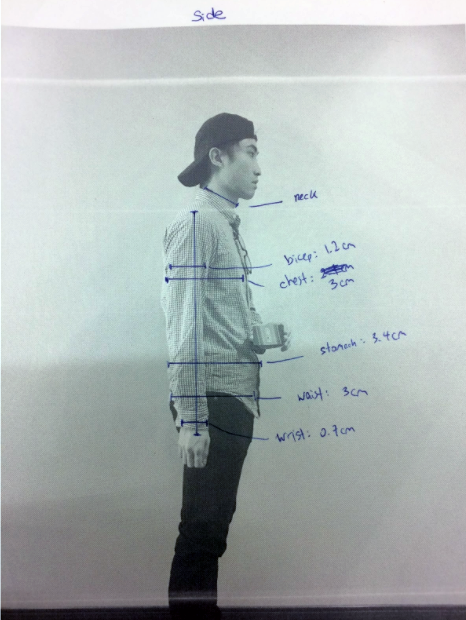 Side
neck
bicep: 1.2cm
chest:
3cm
stomach: 3.4cm
waist: 3cm
wrist: 0.7cm